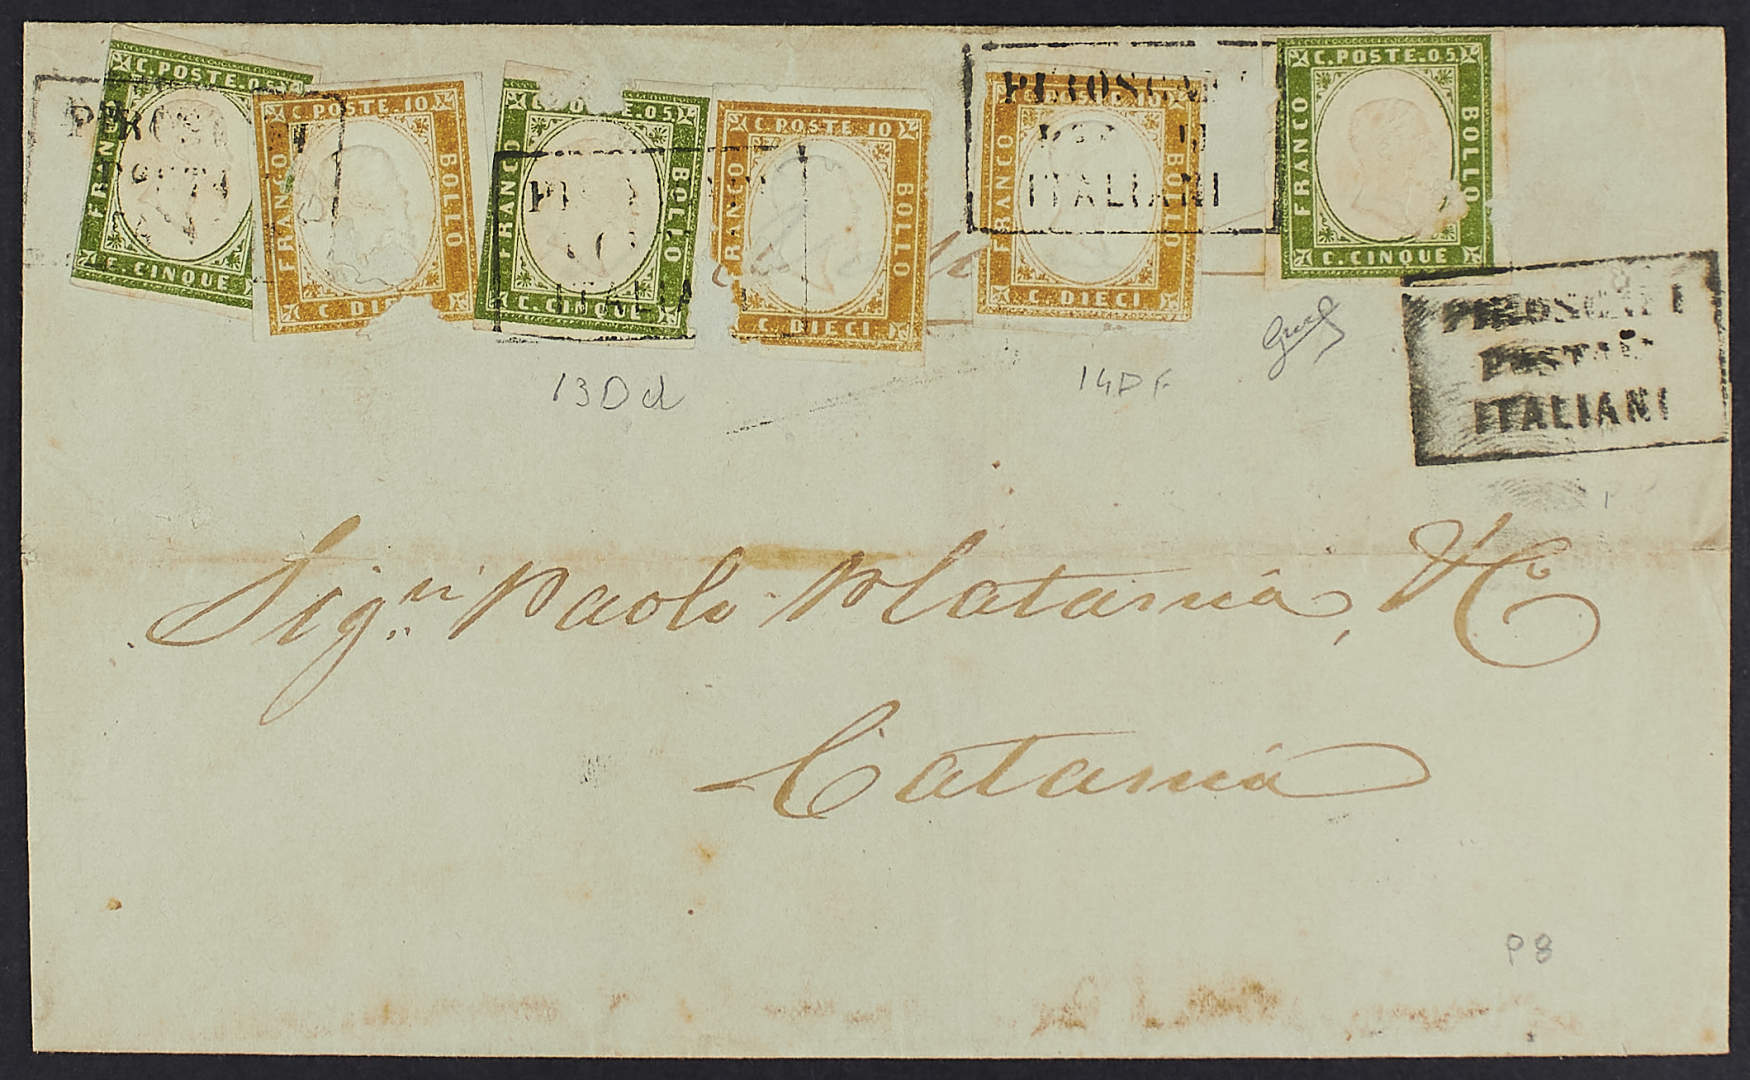 C. POSTE. 05
FRANCO
BOLLO
C. CINQUE
C. POSTE. 10
FRANCO
BOLLO
C. POSTE. 05
FRANCO
BOLLO
C. CINQUE
C. POSTE. 10
FRANCO
BOLLO
C. DIECI
C. POSTE. 10
FRANCO
BOLLO
C. DIECI
C. POSTE. 05
FRANCO
BOLLO
C. CINQUE
PIROSCAFI
ITALIANI
PIROSCAFI
POSTALI
ITALIANI
13Dd
14DF
Sig.ri Paolo Platania, & C
Catania
P8